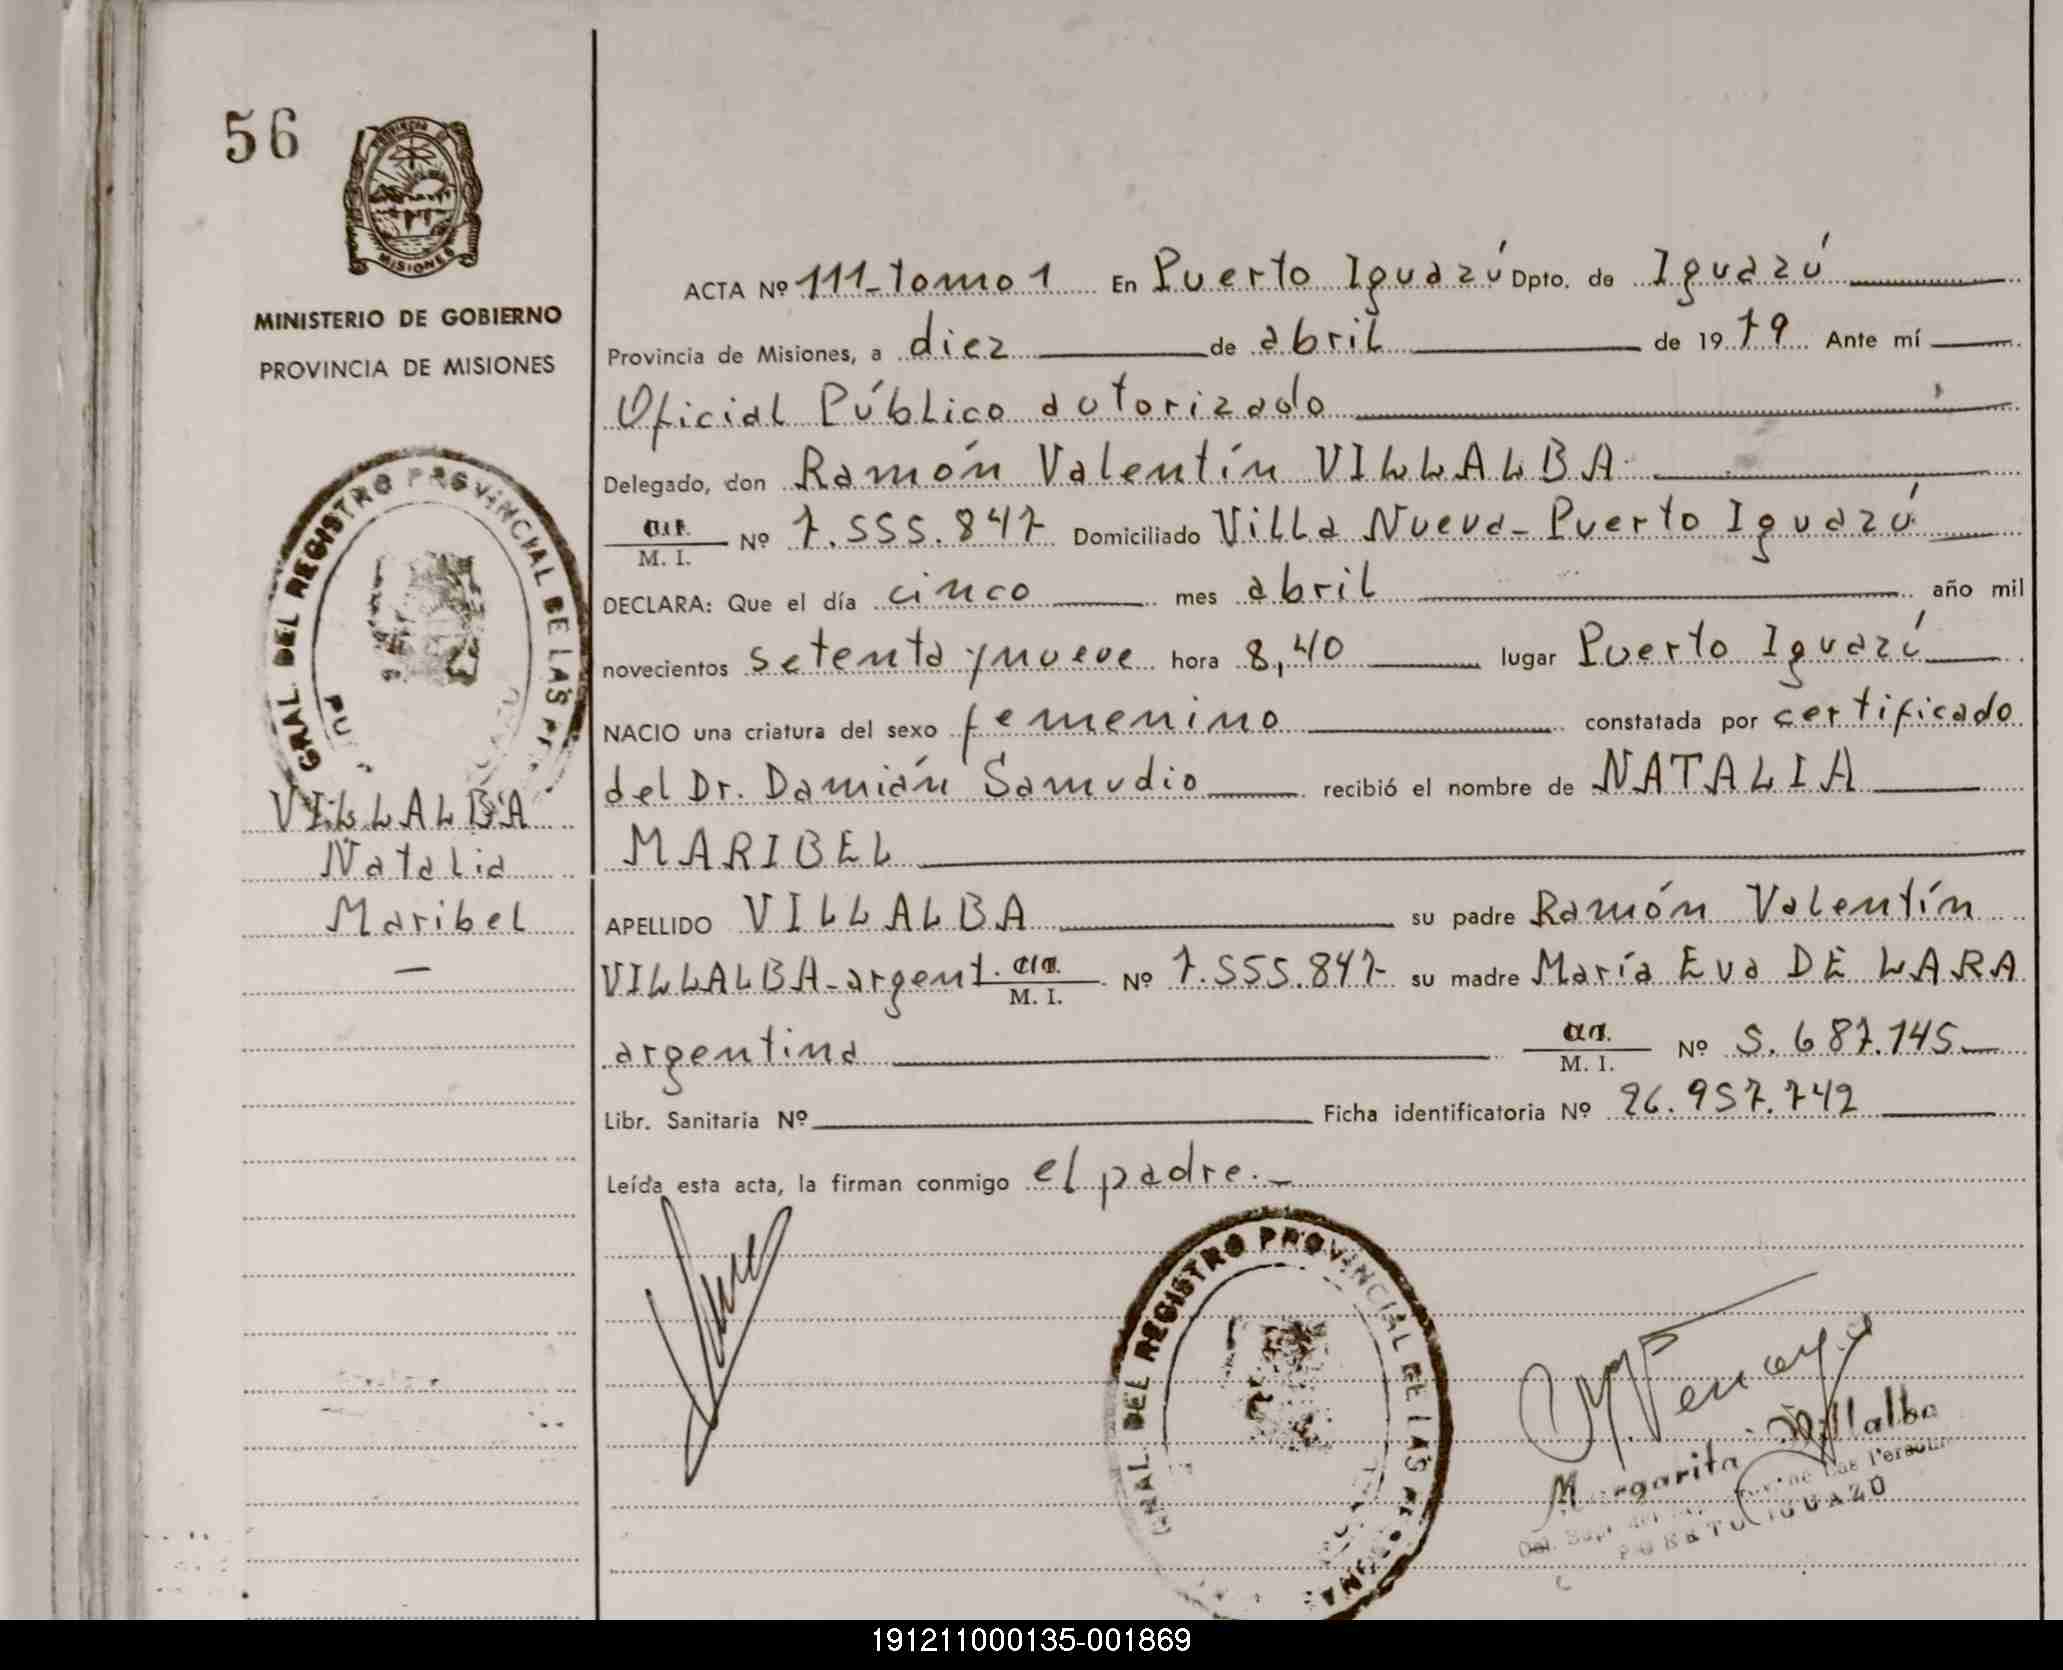 56
PROVINCIA DE
MISIONES
MINISTERIO DE GOBIERNO
PROVINCIA DE MISIONES
GRAL. DEL REGISTRO PROVINCIAL DE LAS
VILLALBA
Natalia
Maribel
ACTA Nº 111-tomo 1 En Puerto Iguazú Dpto. de Iguazú
Provincia de Misiones, a diez de abril de 1979 Ante mí
Oficial Público autorizado
Delegado, don Ramón Valentín VILLALBA
M. I. Nº 7.555.847 Domiciliado Villa Nueva - Puerto Iguazú
DECLARA: Que el día cinco mes abril año mil
novecientos setenta y nueve hora 8,40 lugar Puerto Iguazú
NACIO una criatura del sexo femenino constatada por certificado
del Dr. Damián Samudio recibió el nombre de NATALIA
MARIBEL
APELLIDO VILLALBA su padre Ramón Valentín
VILLALBA-argent. M. I. Nº 7.555.847 su madre María Eva DE LARA
argentina M. I. Nº 5.687.145
Libr. Sanitaria Nº Ficha identificatoria Nº 26.957.742
Leída esta acta, la firman conmigo el padre.-
GRAL. DEL REGISTRO PROVINCIAL DE LAS
Margarita Villalba
PUERTO IGUAZÚ
191211000135-001869